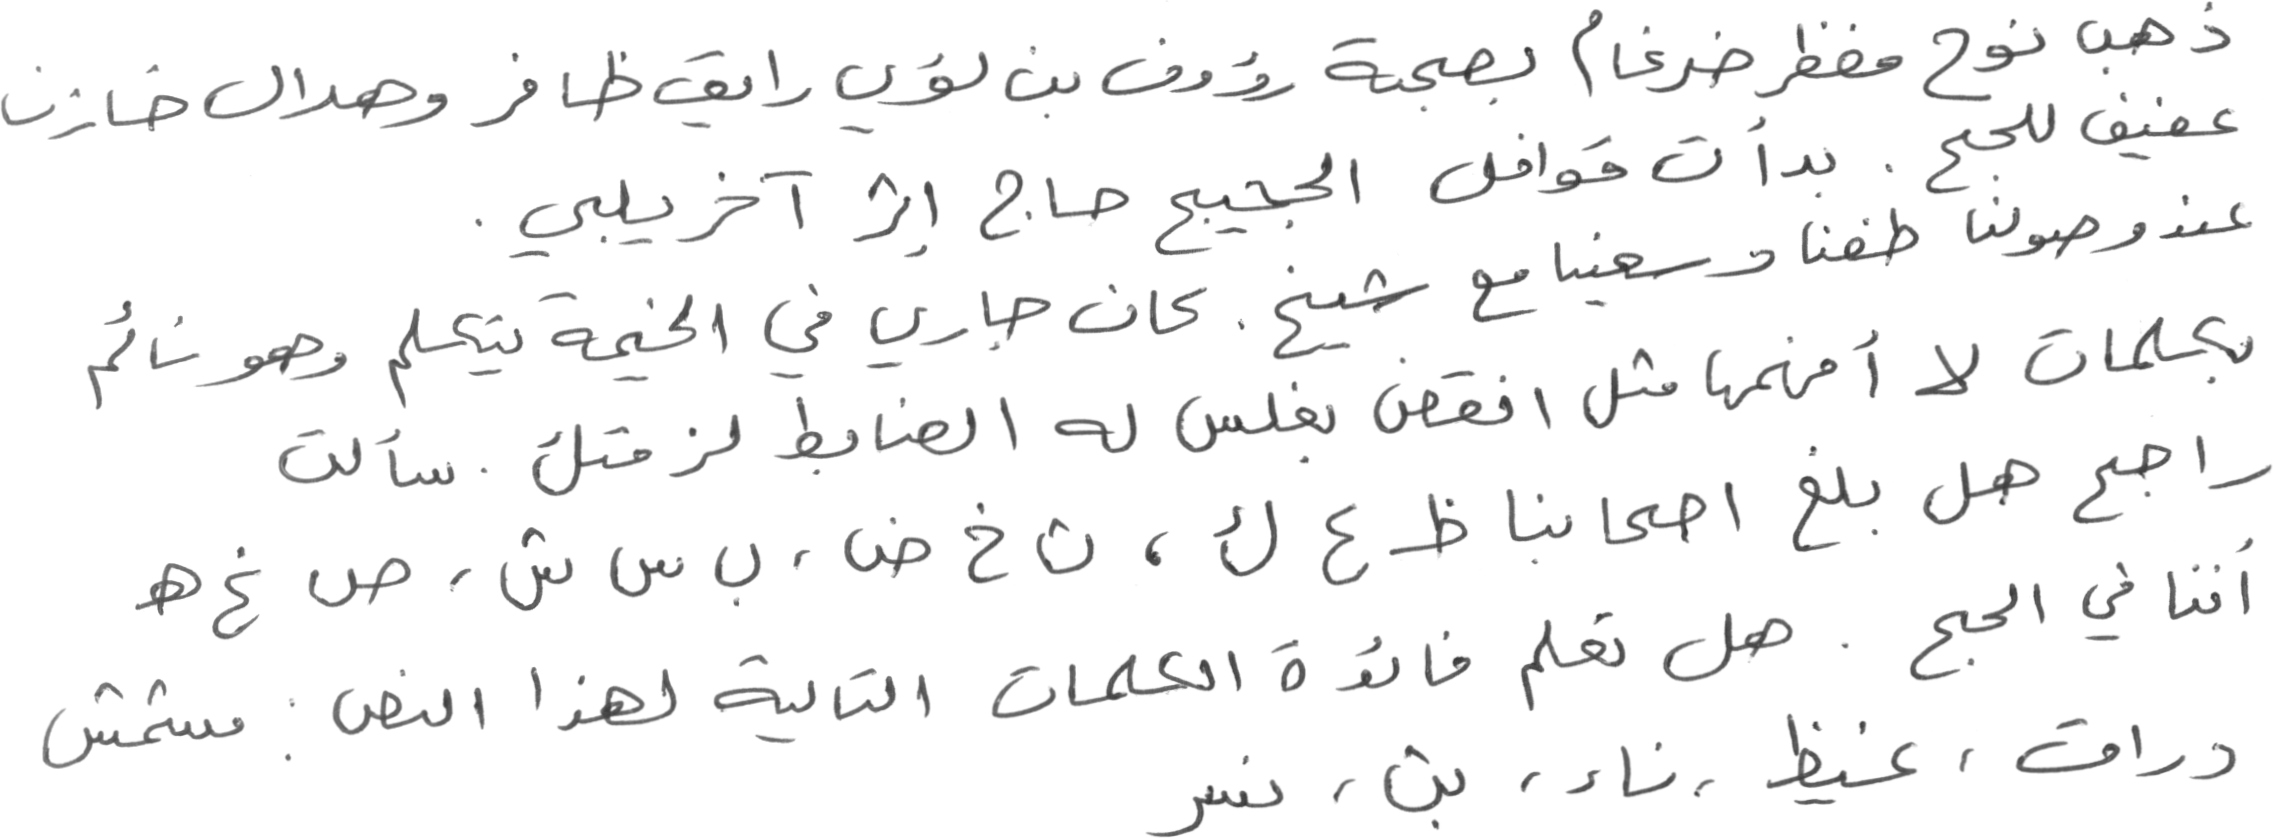 ذهب نوح مظفر ضرغام بصحبة رؤوف بن لؤي رايق ظافر وهدال خازن
عفيف للحج . بدأت قوافل الحجيج حاج إثر آخر يلبي .
عند وصولنا طفنا وسعينا مع شيخ . كان جاري في الخيمة يتكلم وهو نائم
بكلمات لا أفهمها مثل افقض بغلس له الضابط لز قتل . سألت
راجح هل بلغ اصحابنا ظ ع ك ، ث خ ض ، ب س ش ، ص غ ه
أننا في الحج . هل تعلم فائدة الكلمات التالية لهذا النص : مشمش
درافت ، غيظ ، ناء ، بث ، نسر